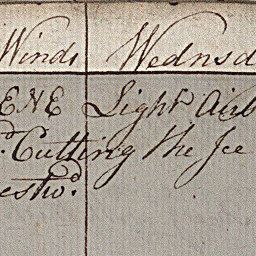 Winds Wednsd
ENE Light Air
d Cutting the Ice
estwd